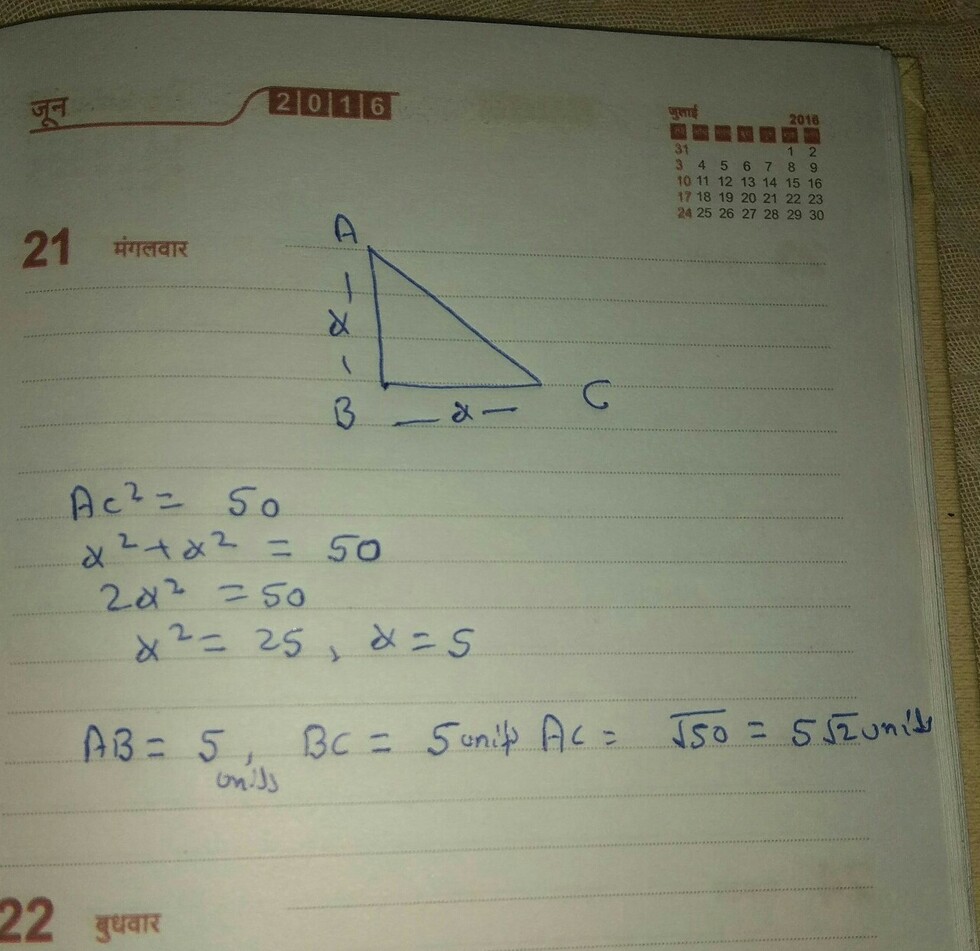 जून 2016
जुलाई 2016
31 1 2
3 4 5 6 7 8 9
10 11 12 13 14 15 16
17 18 19 20 21 22 23
24 25 26 27 28 29 30
21 मंगलवार
A
x
B x C
AC² = 50
x² + x² = 50
2x² = 50
x² = 25, x = 5
AB = 5 units, BC = 5 units AC = √50 = 5√2 units
22 बुधवार